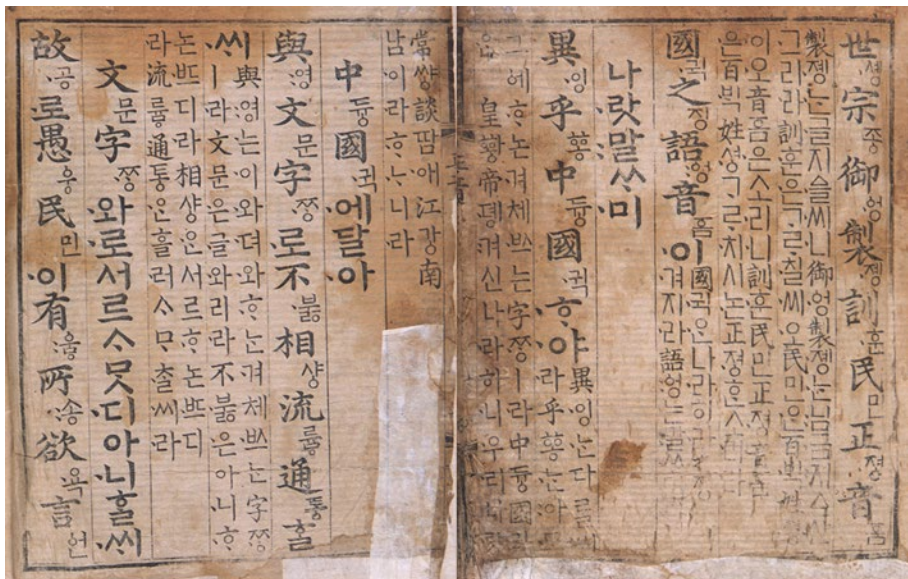 世솅宗종御엉製졩訓훈民민正졍音ᅙᅳᆷ
製졩는글지ᅀᅳᆯ씨니御엉製졩는님금지ᅀᅳ샨
그리라訓훈은ᄀᆞᄅᆞ칠씨오民민은百ᄇᆡᆨ姓셩
이오音ᅙᅳᆷ은소리니訓훈民민正졍音ᅙᅳᆷ
은百ᄇᆡᆨ姓셩ᄀᆞᄅᆞ치시논正졍ᄒᆞᆫ소리
國귁之징語ᅌᅥᆼ音ᅙᅳᆷ이國귁은나라히라之징
겨지라語ᅌᅥᆼ는말
나랏말ᄊᆞ미
異잉乎ᅘᅩᆼ中듀ᇰ國귁ᄒᆞ야異잉는다ᄅᆞᆯ씨
라乎ᅘᅩᆼ는아
그ᅌᅦᄒᆞ논겨체ᄡᅳ는字ᄍᆞᆼㅣ라中듀ᇰ國귁
은皇ᅘᅪᇰ帝뎽겨신나라히니우리나랏
常쌰ᇰ談땀애江가ᇰ南
남이라ᄒᆞᄂᆞ니라
中듀ᇰ國귁에달아
與영文문字ᄍᆞᆼ로不부ᇙ相샤ᇰ流류ᇢ通토ᇰᄒᆞᆯ
ᄊᆡ與영는이와뎌와ᄒᆞ는겨체ᄡᅳ는字ᄍᆞᆼ
ㅣ라文문은글와리라不부ᇙ은아니ᄒᆞ
논ᄠᅳ디라相샤ᇰ은서르ᄒᆞ논ᄠᅳ디
라流류ᇢ通토ᇰ은흘러ᄉᆞᄆᆞᄎᆞᆯ씨라
文문字ᄍᆞᆼ와로서르ᄉᆞᄆᆞᆺ디아니ᄒᆞᆯᄊᆡ
故공로愚ᅌᅮᆼ民민이有우ᇢ所송欲욕言언